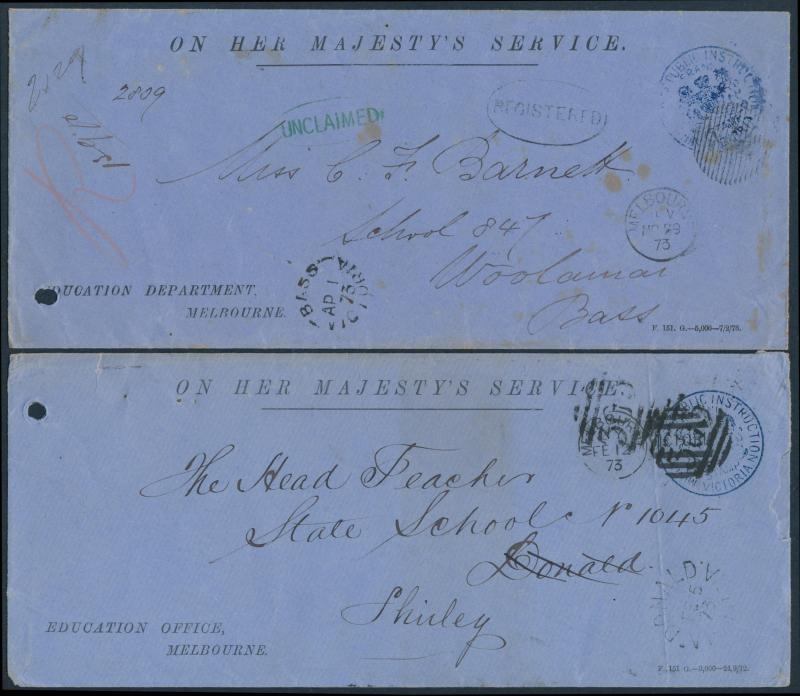 ON HER MAJESTY'S SERVICE.
2809
UNCLAIMED
REGISTERED
PUBLIC INSTRUCTION
Miss C. F. Barnett
School 847
Woolamai
Bass
MELBOURNE
73
BASS
AP 1
73
EDUCATION DEPARTMENT,
MELBOURNE.
F. 151. G.—5,000—7/2/73.
ON HER MAJESTY'S SERVICE.
PUBLIC INSTRUCTION
VICTORIA
FE
73
The Head Teacher
State School No 1045
Donald
Shirley
EDUCATION OFFICE,
MELBOURNE.